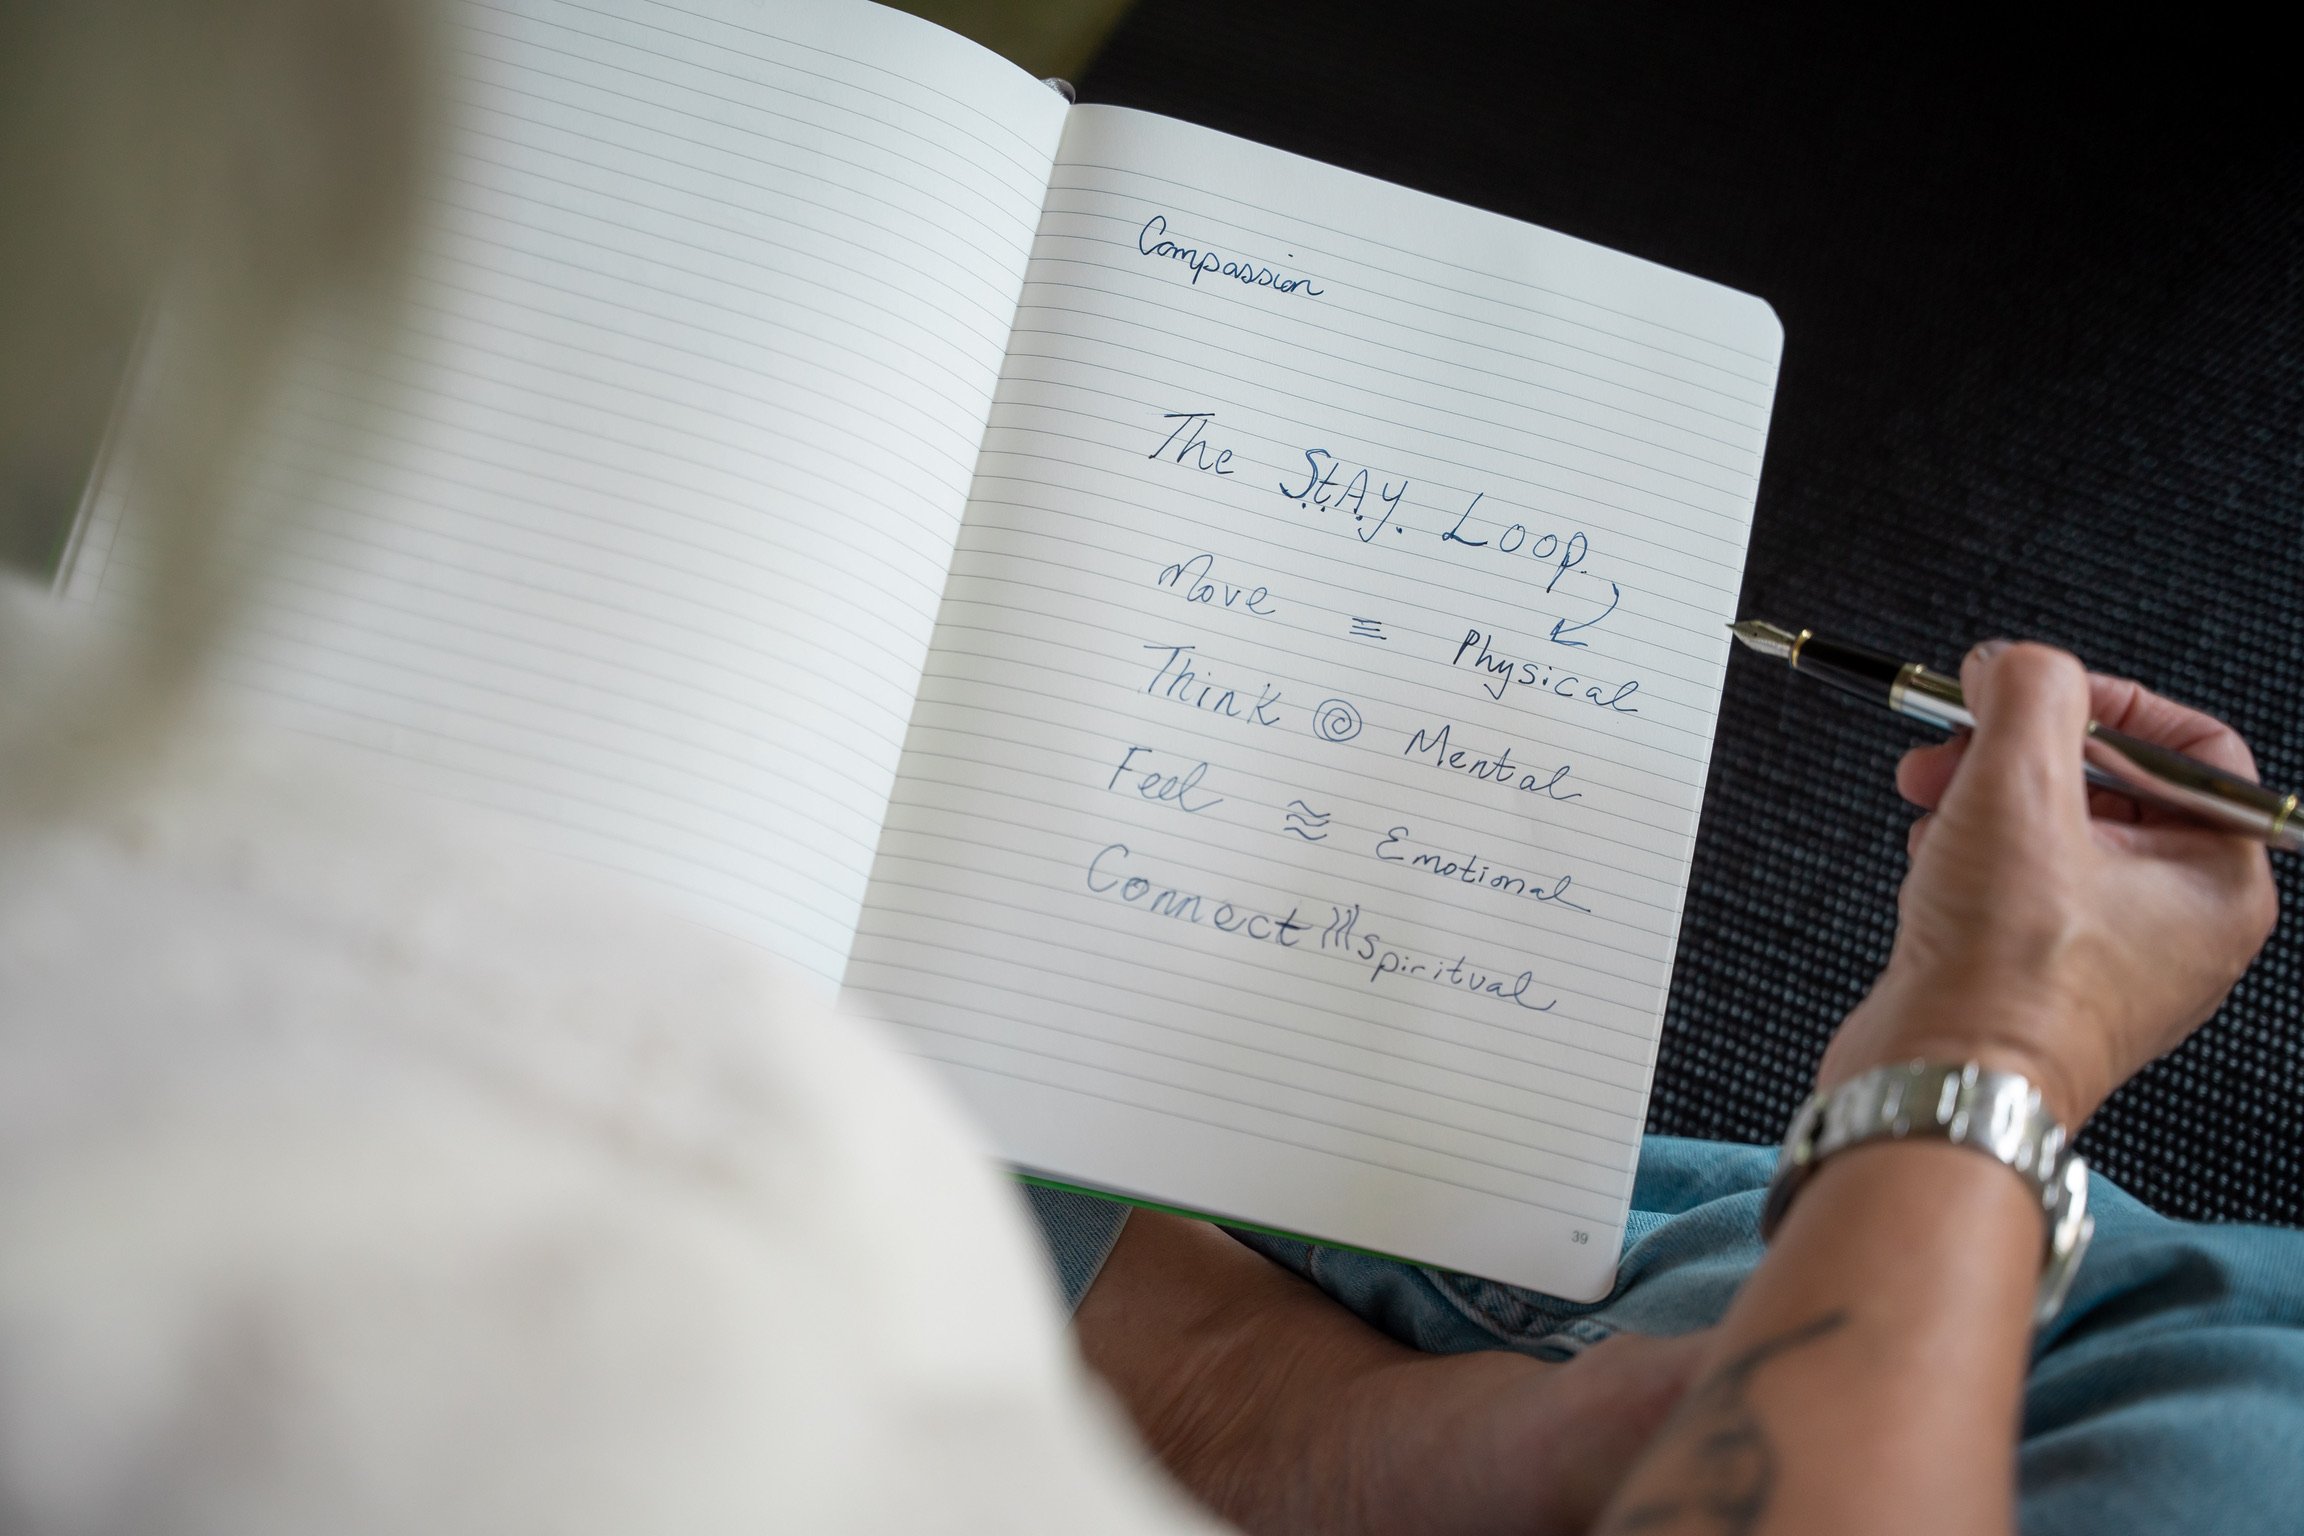 Compassion
The StAY. Loop.
Move ≡ Physical
Think Mental
Feel Emotional
Connect Spiritual
39